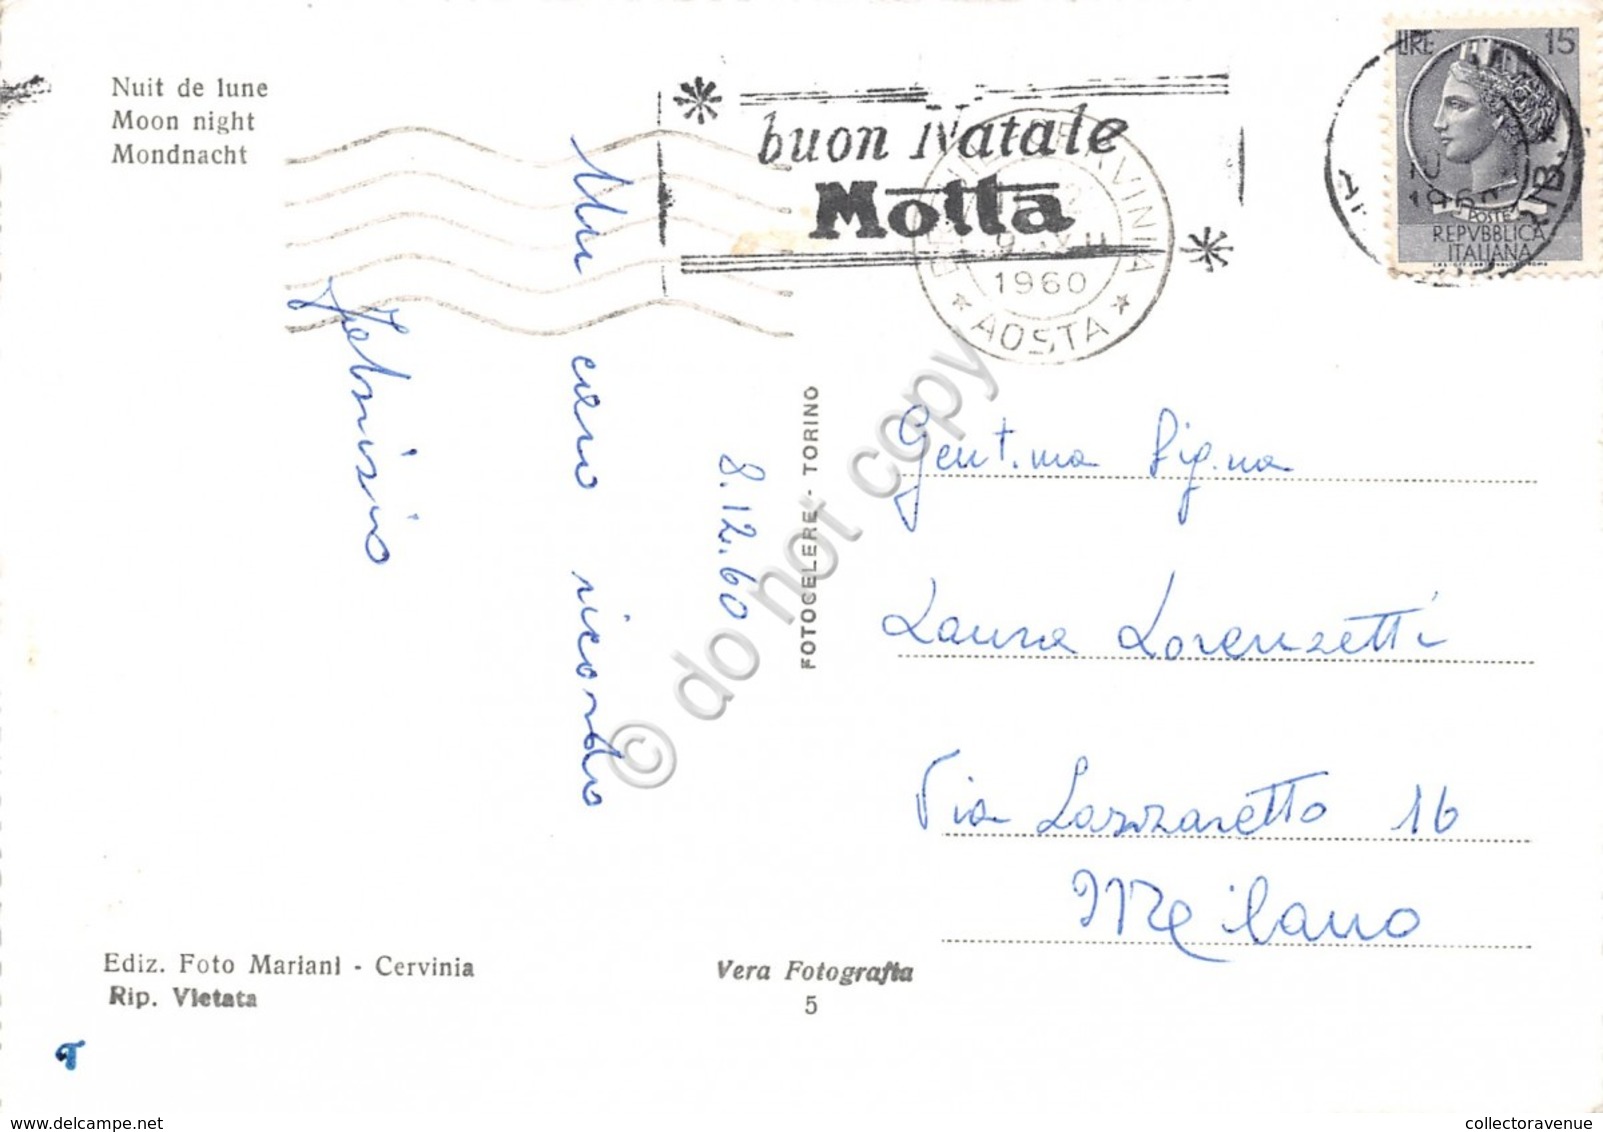 Nuit de lune
Moon night
Mondnacht
buon Natale
Motta
1960
AOSTA
LIRE 15
POSTE
REPVBBLICA
ITALIANA
Un caro ricordo
Fabrizio
8.12.60
FOTOCELERE - TORINO
Gent.ma Sig.na
Laura Lorenzetti
Via Lazzaretto 16
Milano
Ediz. Foto Mariani - Cervinia
Rip. Vietata
Vera Fotografia
5
© do not copy
delcampe.net
collectoravenue